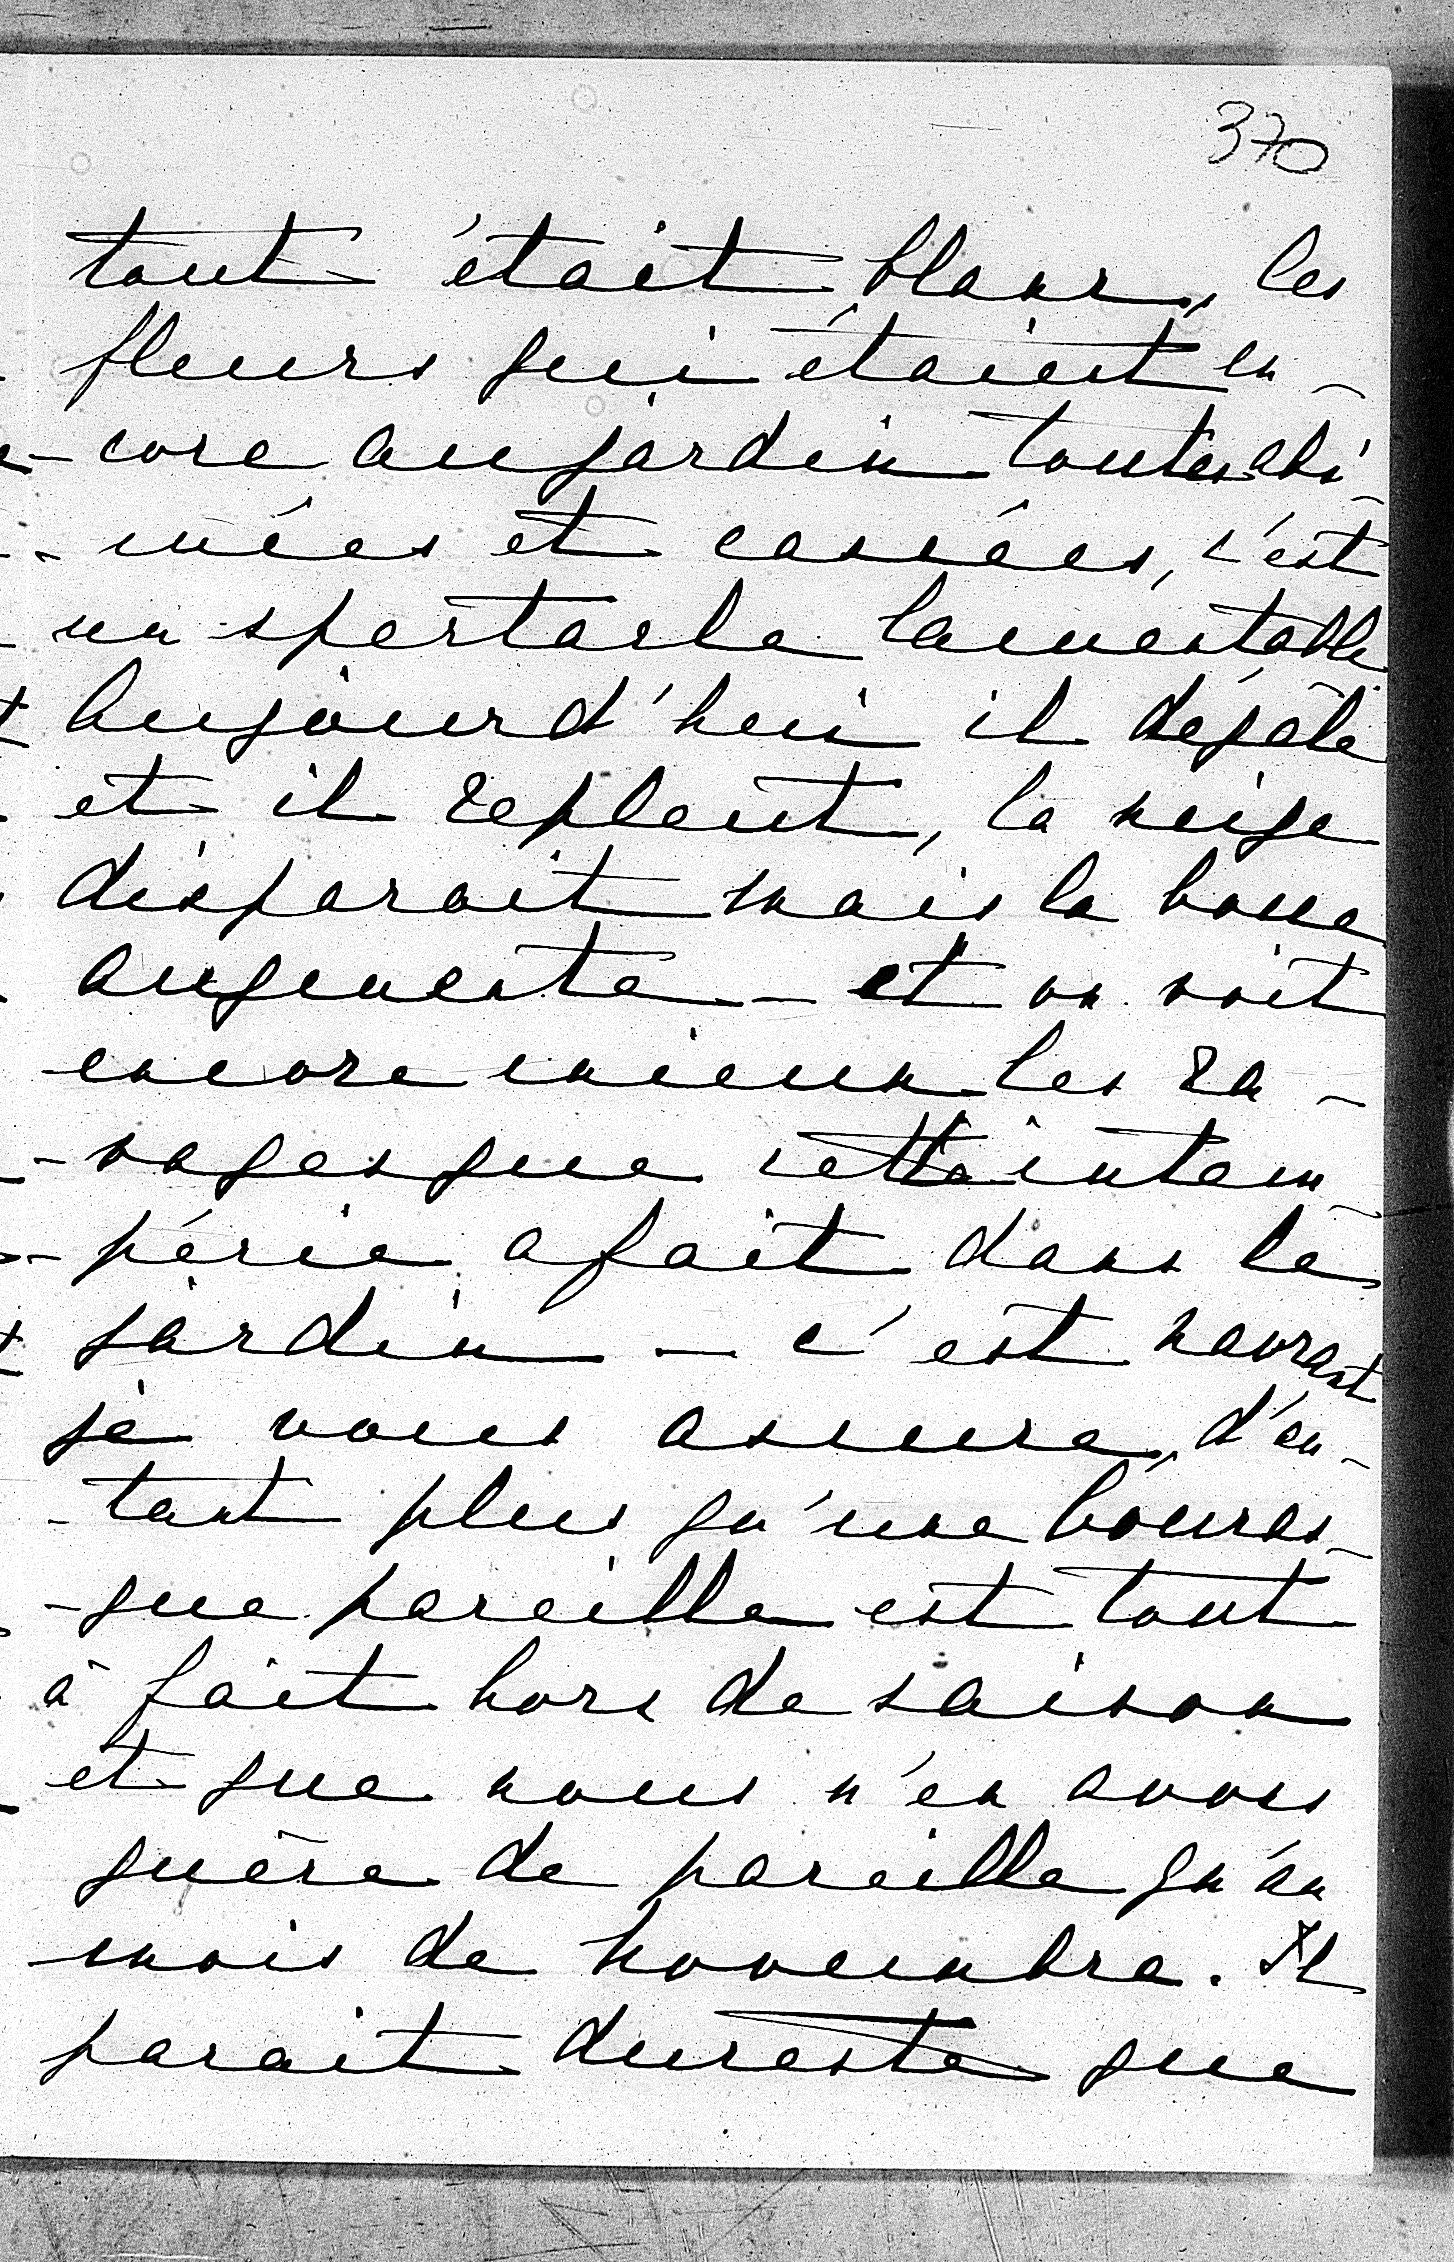 370
tout était blanc, les
fleurs qui étaient en-
-core au jardin toutes abi-
-mées et cassées, c'est
un spectacle lamentable
Aujourd'hui il dégèle
et il repleut, la neige
disparait mais la boue
augmente - et on voit
encore mieux les ra-
-vages que cette intem-
-périe a fait dans le
jardin - c'est navrant
je vous assure, d'au-
-tant plus qu'une bouras-
-que pareille est tout
à fait hors de saison
et que nous n'en avons
guère de pareille qu'au
mois de novembre. Il
parait dureste que